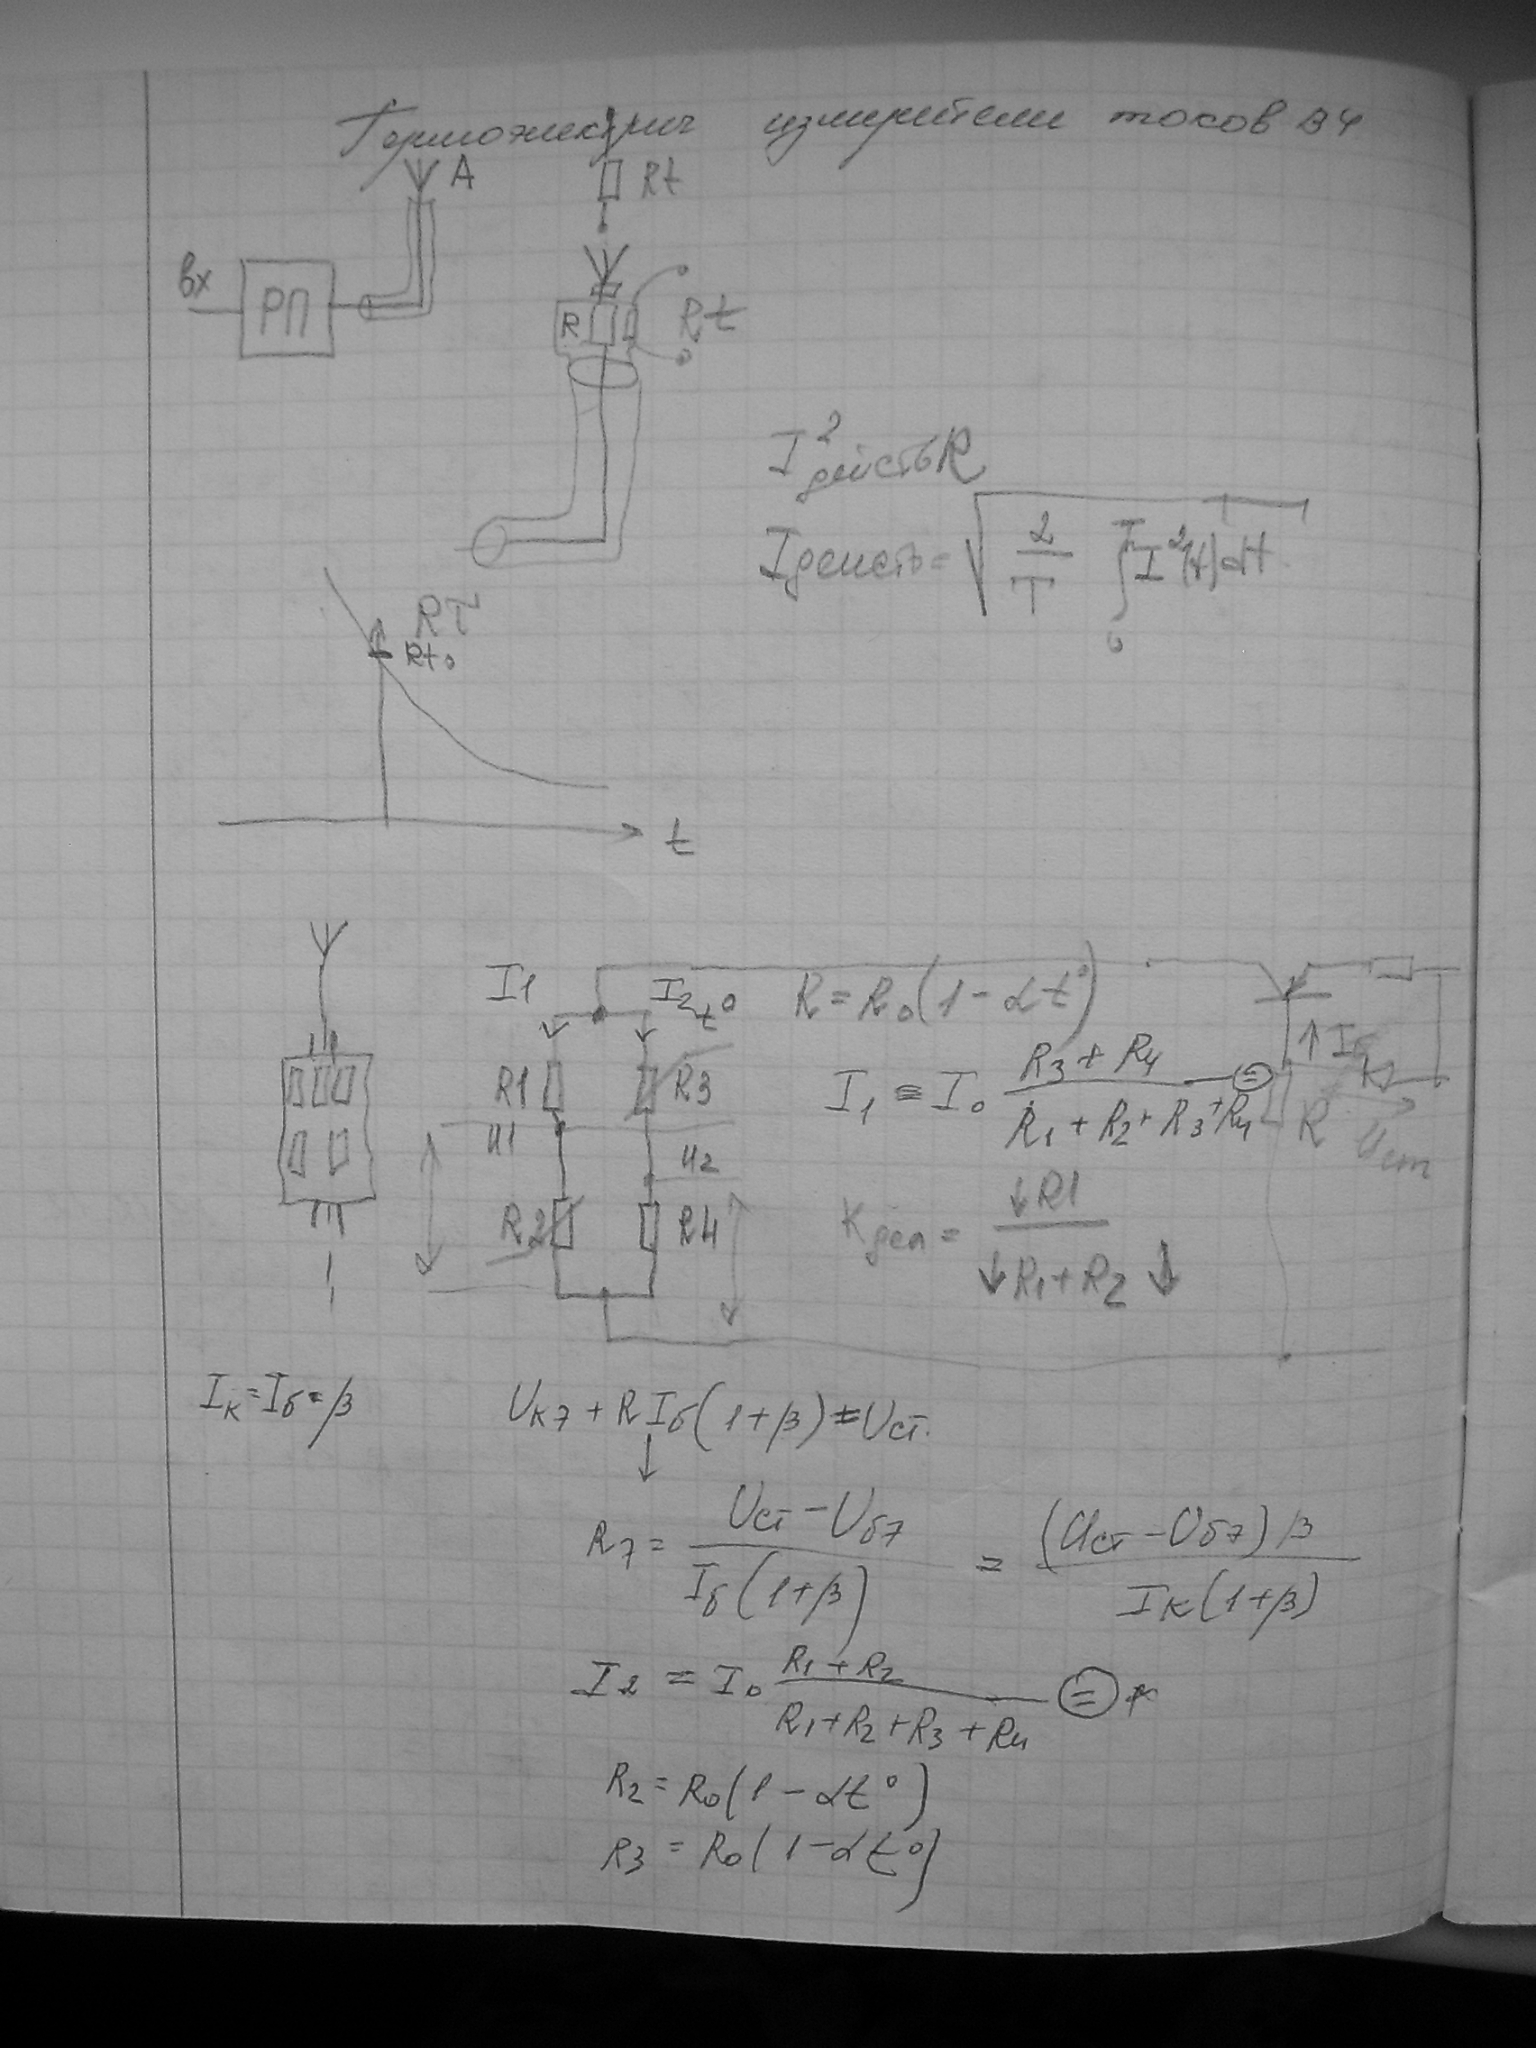 Термоэлектрич измерители токов ВЧ
А
Rt
вх
РП
R
Rt
I²действR
Iдейств= √(2/T ∫₀ᵀ I²(t)dt)
RT
Rt₀
t
I1
I2
t⁰
R=R₀(1-αt⁰)
R1
R3
I₁ = I₀ (R₃+R₄)/(R₁+R₂+R₃+R₄) =
↑ Iб
R
Uст
U1
U2
R2
R4
Kдел = ↓R1/↓R₁+R₂↓
Iк=Iб=β
Uкэ+RIб(1+β)=Uст.
Rэ= (Uст-Uбэ)/(Iб(1+β)) = ((Uст-Uбэ)β)/(Iк(1+β))
I2 = I₀ (R₁+R₂)/(R₁+R₂+R₃+R₄) = *
R₂=R₀(1-αt⁰)
R3=R₀(1-αt⁰)